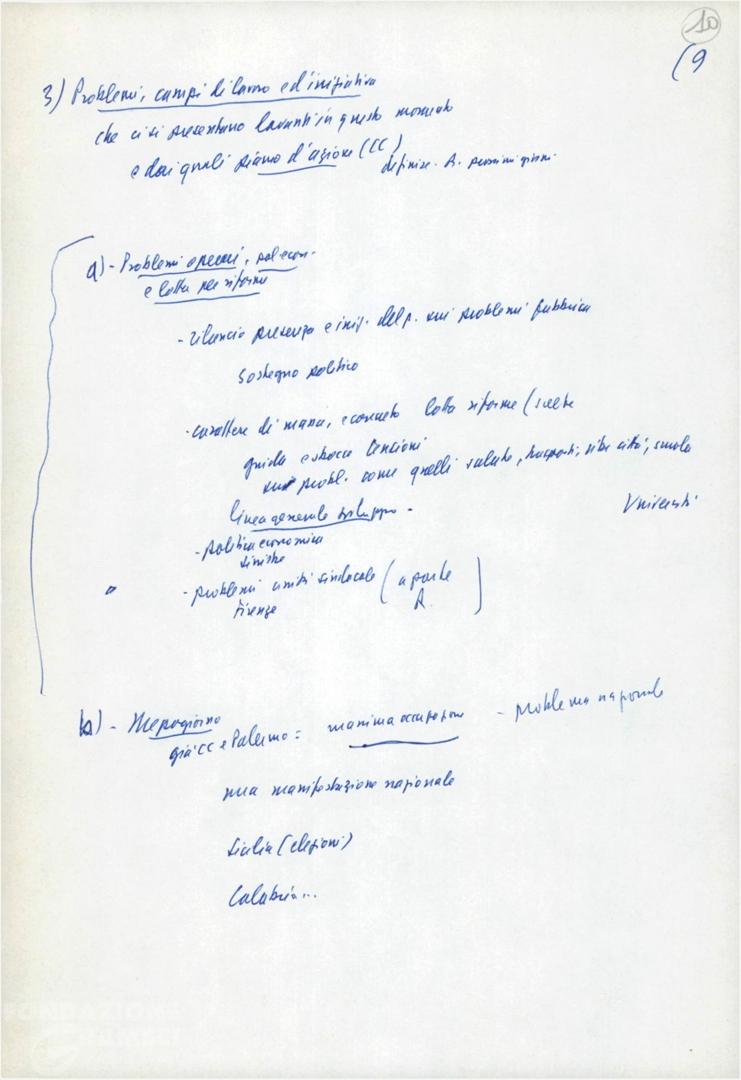 10
(9
3) Problemi, campi di lavoro ed'iniziativa
che ci si presentano davanti in questo momento
e dai quali piano d'azione (CC)
definire. A. prossimi giorni
a) - Problemi operai, pol econ.
e lotta per riforme
- rilancio presenza e iniz. del p. sui problemi fabbrica
sostegno politico
- carattere di massa, e concreto lotta riforme (scelte
guida
sui probl. come quelli salute, trasporti, città, scuola
Università
linea generale sviluppo -
- politica economica
sinistre
- problemi unità sindacale (a parte
Firenze A. )
b) - Mezzogiorno
già CC e Palermo = massima occupazione - problema nazionale
una manifestazione nazionale
Sicilia (elezioni)
Calabria...
FONDAZIONE
GRAMSCI